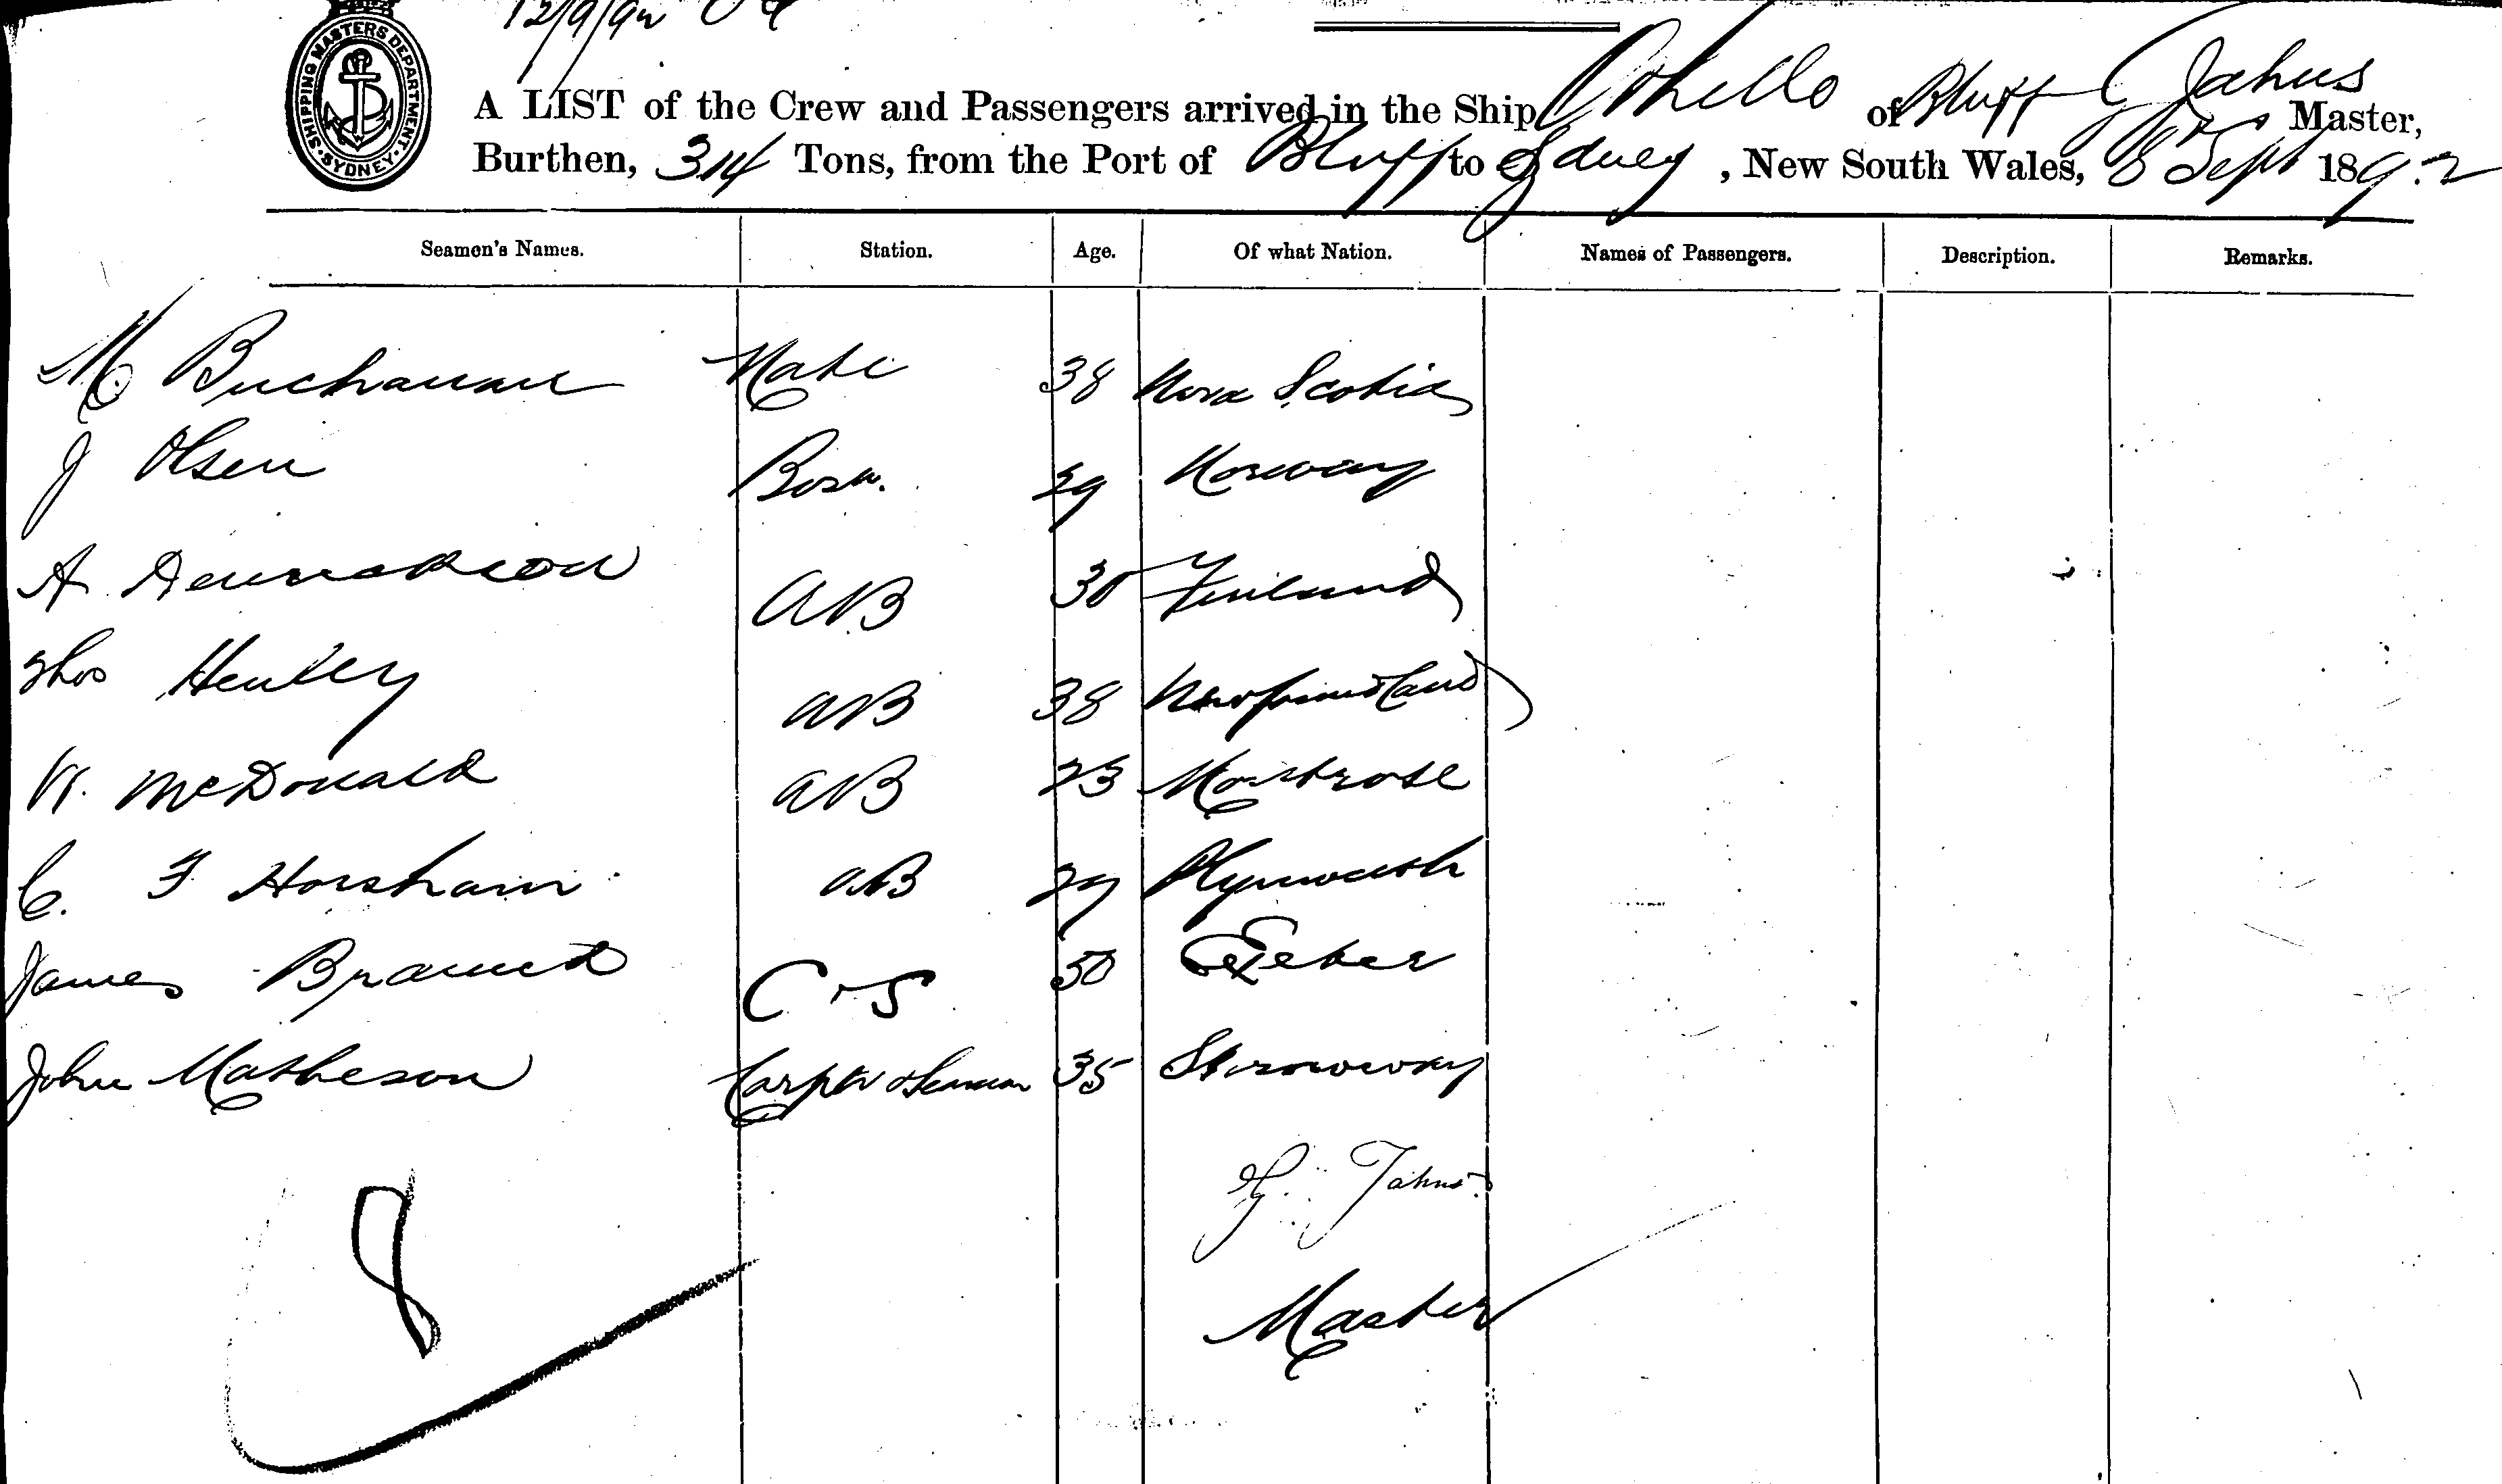 12/9/92
SHIPPING MASTERS DEPARTMENT · SYDNEY ·
A LIST of the Crew and Passengers arrived in the Ship Othello of Bluff G Jahns Master,
Burthen, 314 Tons, from the Port of Bluff to Sydney , New South Wales, 8 Sept 1892
Seamen's Names. Station. Age. Of what Nation. Names of Passengers. Description. Remarks.
M Buchanan Mate 38 Nova Scotia
J Olsen Bosn. 29 Norway
A AB 30 Finland
Thos Henley AB 38 Newfoundland
W. McDonald AB 23 Montrose
C. F Horsham AB 29 Plymouth
James C & S 50 Exeter
John Matheson Carptr & Seaman 35 Stornoway
G. Jahns.
8
Master